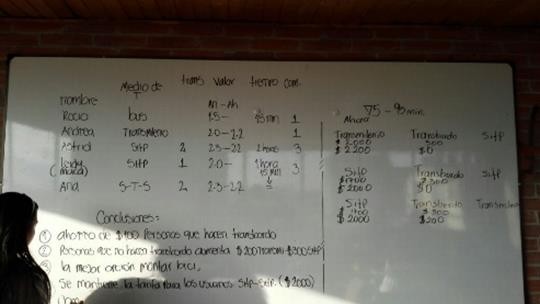 Medio de trans valor tiempo com.
T
Nombre An - Ah
Rocio bus 1.5- 45 min 1
Andrea Transmilenio 2.0-2.2 1
Astrid Sitp 2 2.5-2.2 2 horas 3
Leidy Sitp 1 2.0- 1 hora 3
(maria) 15 min
Ana S-T-S 2 2.3-2.2
75 - 95 min.
Ahora
Transmilenio Transbordo Sitp
$2.000 500
$2200 $0
Sitp Transbordo Sitp
$1700 $300
$2000 $0
Sitp Transbordo
$1700 $300
$2000 $200
Conclusiones:
① ahorro de $100 Personas que hacen transbordo
② Personas que no hacen transbordo aumenta $200 Transmi $300 Sitp
la mejor opcion montar bici,
Se mantiene la tarifa para los usuarios Sitp-Sitp. ($2000)